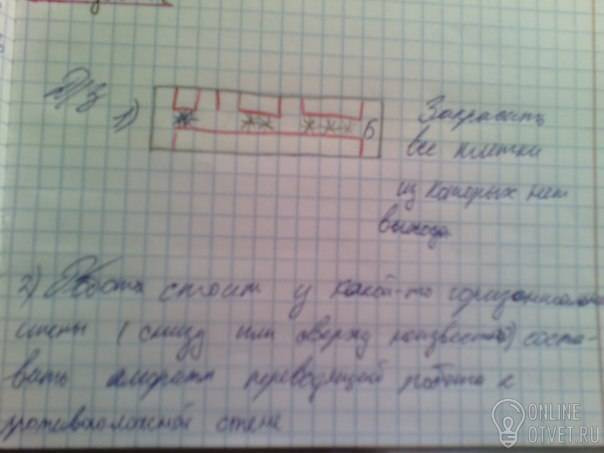 Д/з
1)
Б
Закрасить
все клетки
из которых нет
выхода
2) Робот стоит у какой-то горизонтальной
стены (снизу или сверху неизвестно) соста-
вить алгоритм переводящий робота к
противоположной стене
ONLINE
OTVET.RU